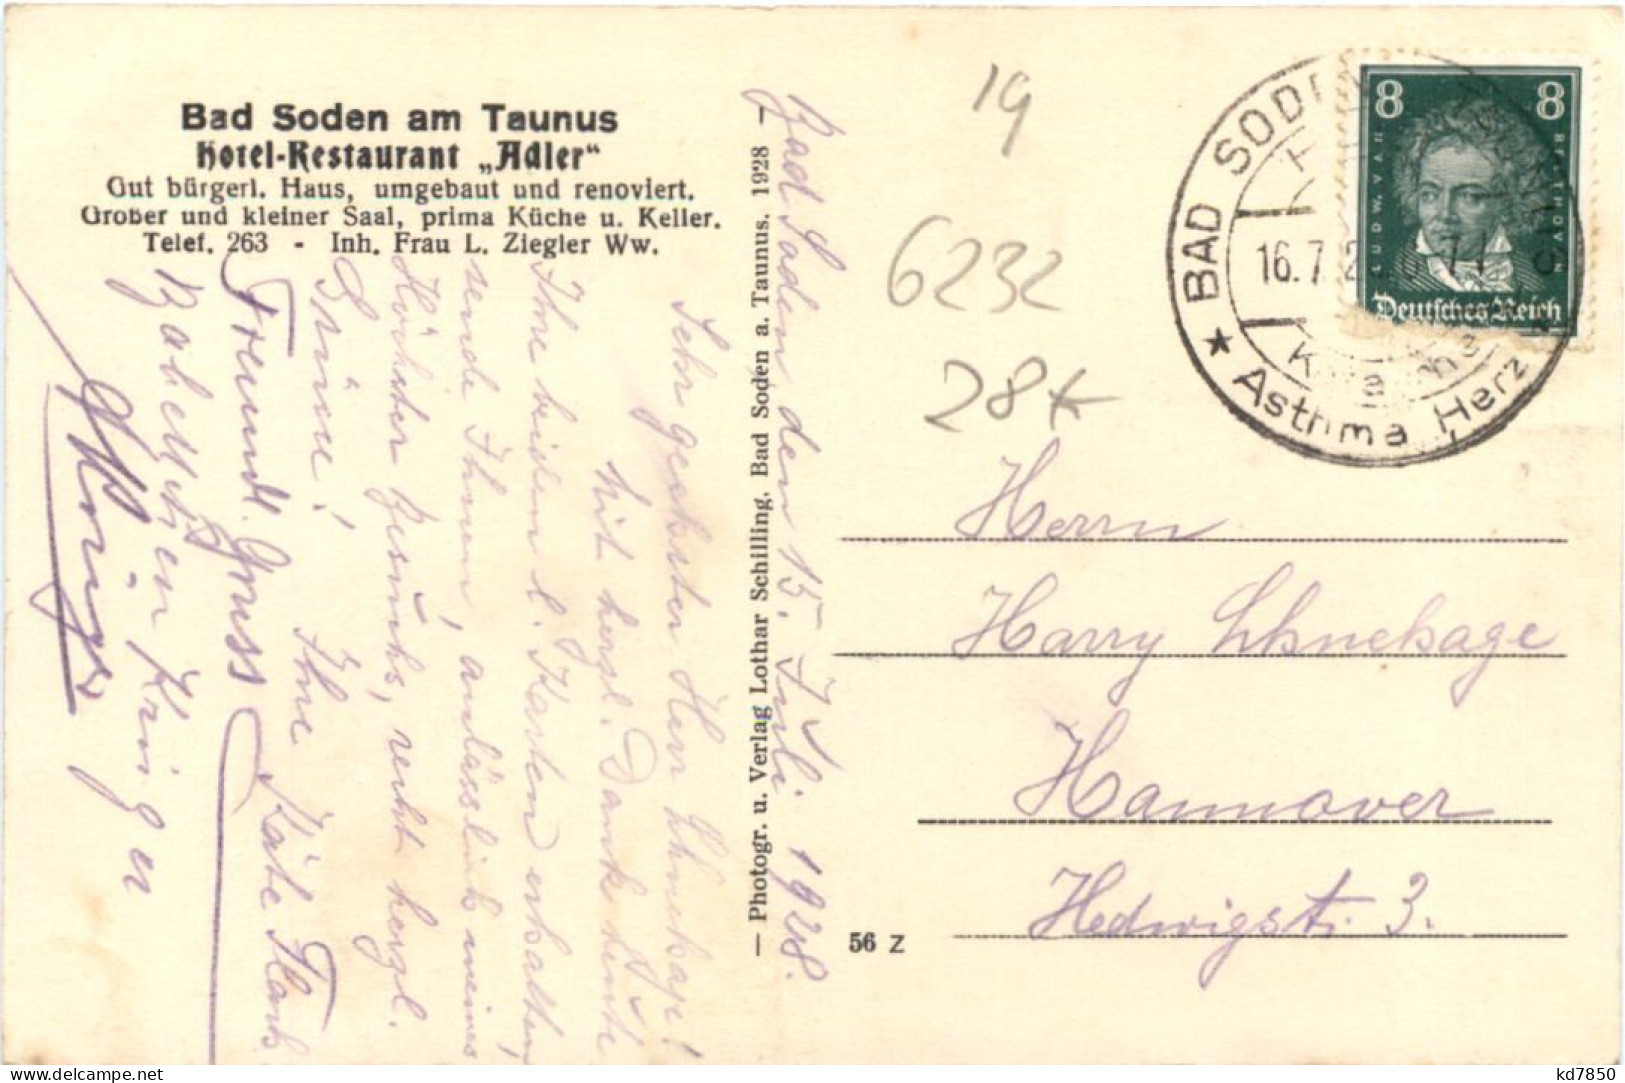 Bad Soden am Taunus
Hotel-Restaurant „Adler“
Gut bürgerl. Haus, umgebaut und renoviert.
Großer und kleiner Saal, prima Küche u. Keller.
Telef. 263 - Inh. Frau L. Ziegler Ww.
Bad Soden den 15. Juli. 1928.
Sehr geehrter Herr
Mit herzl. Danke
Ihre beiden l. Karten erhalten,
sende Ihnen, anlässlich meines
Höchster Besuchs, recht herzl.
Grüsse!
Ihre Käte
Freundl. Gruss
— Photogr. u. Verlag Lothar Schilling, Bad Soden a. Taunus. 1928 —
56 Z
19
6232
28
BAD SODEN TAUNUS
16.7.2
★ Asthma Herz
8 8
LUDW. VAN
BEETHOVEN
Deutsches Reich
Herrn
Harry
Hannover
Hedwigstr. 3.
DELCAMPE.NET
kd7850